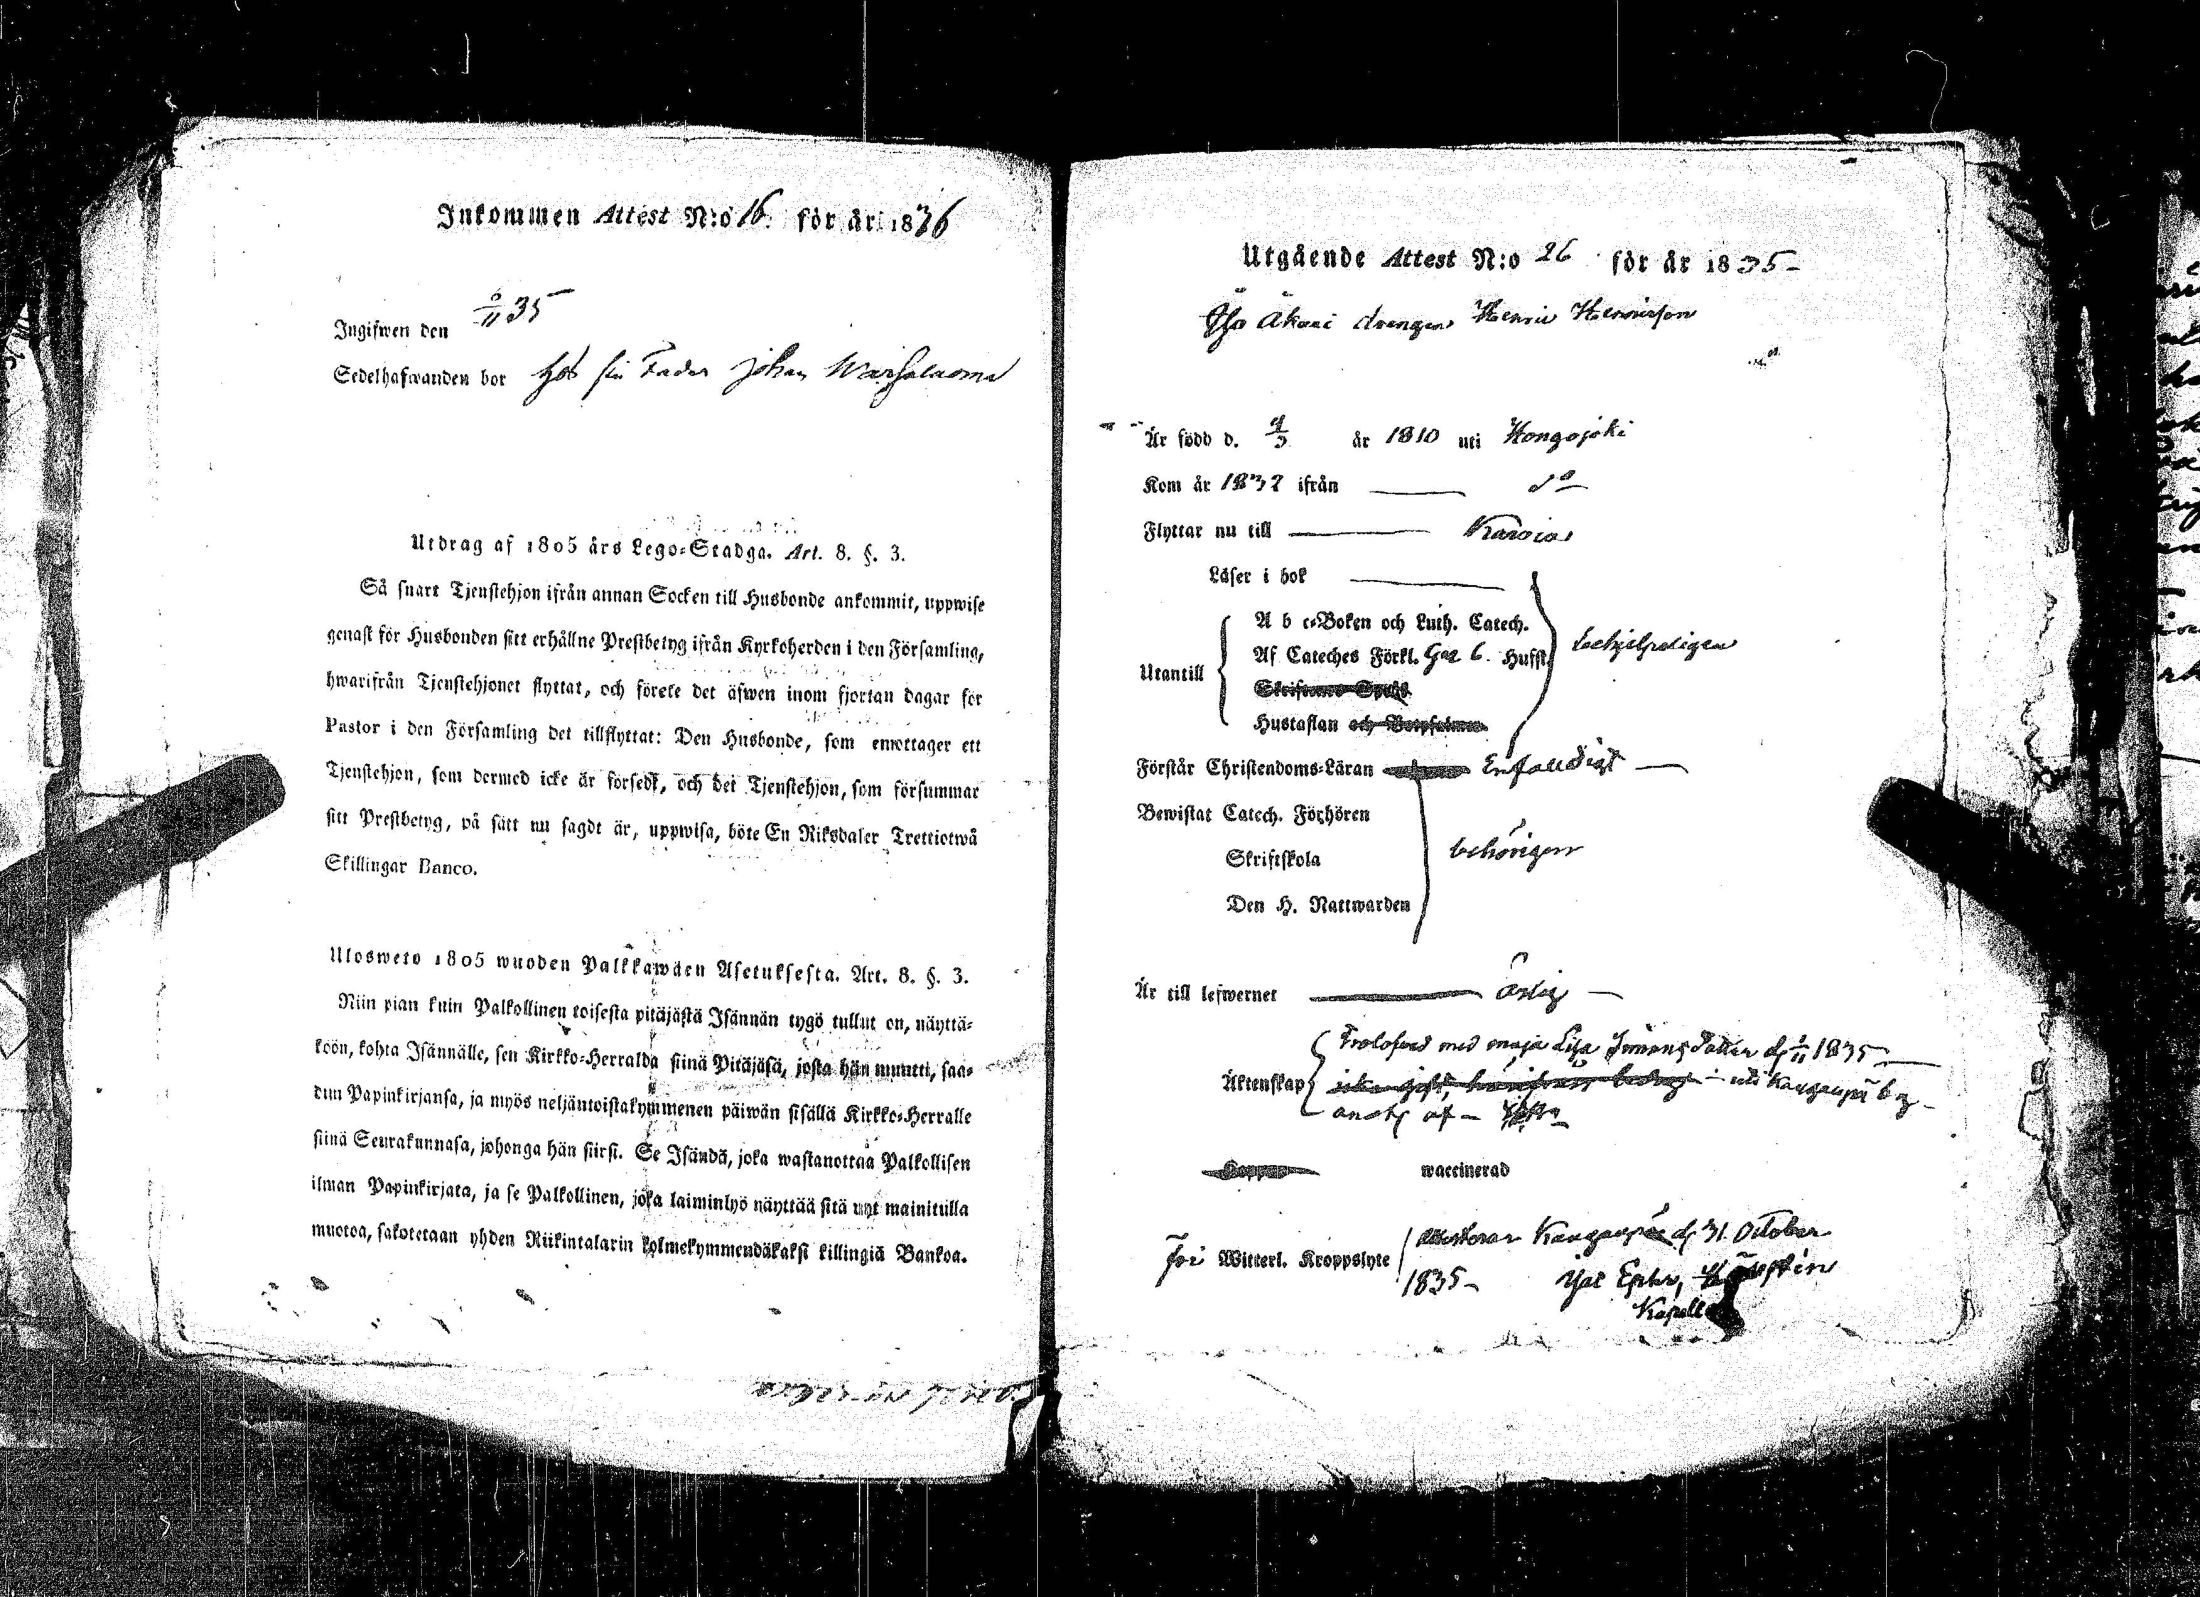 Inkommen Attest N:o 16. för år 1836
Ingifwen den 8/11 35
Sedelhafwanden bor hos sin Fader Johan
Utdrag af 1805 års Lego-Stadga. Art. 8. §. 3.
Så snart Tjenstehjon ifrån annan Socken till Husbonde ankommit, uppwise
genast för Husbonden sitt erhållne Prestbetyg ifrån Kyrkoherden i den Församling,
hwarifrån Tjenstehjonet flyttat, och förete det äfwen inom fjortan dagar för
Pastor i den Församling det tillflyttat: Den Husbonde, som emottager ett
Tjenstehjon, som dermed icke är försedt, och det Tjenstehjon, som försummar
sitt Prestbetyg, på sätt nu sagdt är, uppwisa, böte En Riksdaler Trettiotwå
Skillingar Banco.
Ulosweto 1805 wuoden Palkkawäen Asetuksesta. Art. 8. §. 3.
Niin pian kuin Palkollinen toisesta pitäjästä Isännän tygö tullut on, näyttä-
köön, kohta Isännälle, sen Kirkko-Herralda siinä Pitäjäsä, josta hän muutti, saa-
dun Papinkirjansa, ja myös neljäntoistakymmenen päiwän sisällä Kirkko-Herralle
siinä Seurakunnasa, johonga hän siirsi. Se Isändä, joka wastanottaa Palkollisen
ilman Papinkirjata, ja se Palkollinen, joka laiminlyö näyttää sitä nyt mainitulla
muotoa, sakotetaan yhden Riikintalarin kolmekymmendäkaksi killingiä Bankoa.
Utgående Attest N:o 26 för år 1835
drengen Henric Henricsson
Är född d. år 1810 uti Hongojoki
Kom år 1832 ifrån do
Flyttar nu till Karvia
Läser i bok
Utantill
A b c-Boken och Luth. Catech.
Af Cateches Förkl. Hufst.
behjelpeligen
Hustaflan
Förstår Christendoms-Läran Enfaldigt
Bewistat Catech. Förhören
Skriftskola behörigen
Den H. Nattwarden
Är till lefwernet ärlig
Trolofvad med Maja Lisa Simons Dotter d. 1/11 1835
Äktenskap
waccinerad
fri Witterl. Kroppslyte d. 31 October
1835